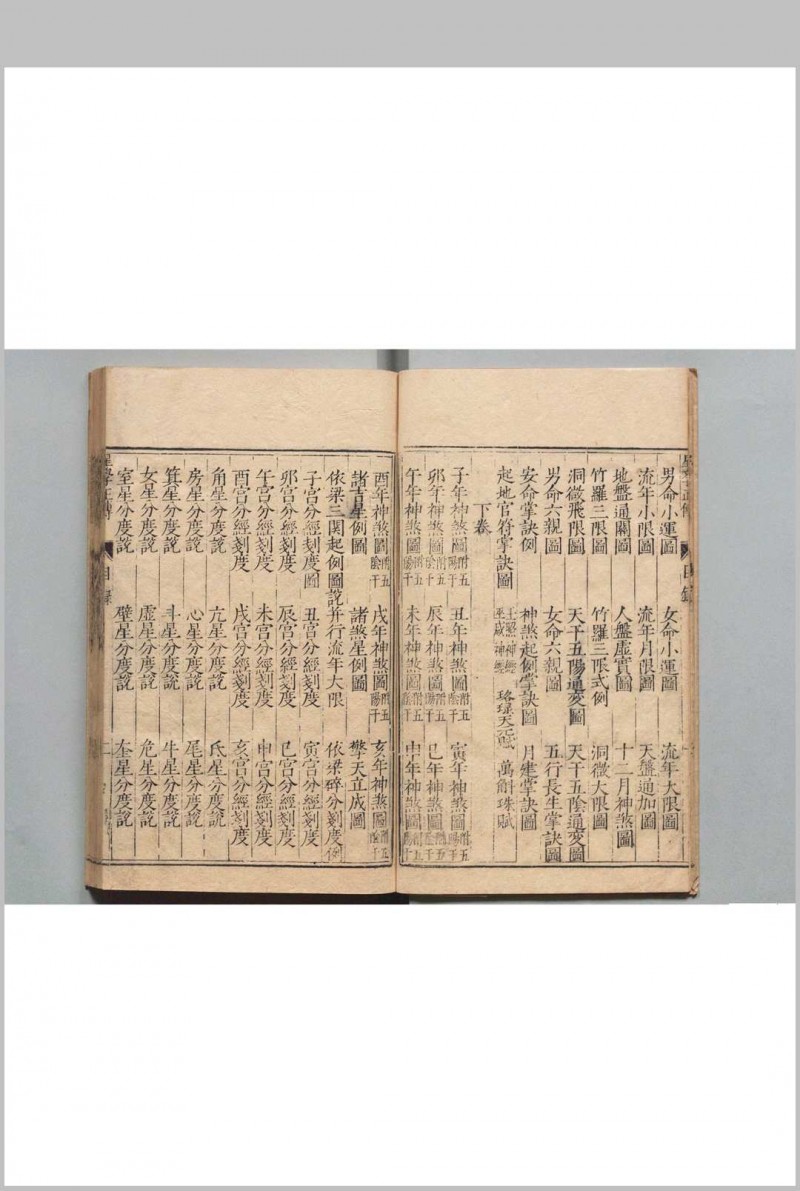 男命小運圖 女命小運圖 流年大限圖
流年小限圖 流年月限圖 天盤通加圖
地盤通關圖 人盤虛實圖 十二月神煞圖
竹羅三限圖 竹羅三限式例 洞微大限圖
洞微飛限圖 天干五陽通变圖 天干五陰通变圖
男命六親圖 女命六親圖 五行長生掌訣圖
安命掌訣例 神煞起例掌訣圖 月建掌訣圖
起地官符掌訣圖 珞琭天元賦 萬斛珠賦
下卷
子年神煞圖附五陽干 丑年神煞圖附五陰干 寅年神煞圖附五陽干
卯年神煞圖附五陰干 辰年神煞圖附五陽干 巳年神煞圖附五陰干
午年神煞圖附五陽干 未年神煞圖附五陰干 申年神煞圖附五陽干
酉年神煞圖附五陰干 戌年神煞圖附五陽干 亥年神煞圖附五陰干
諸吉星例圖 諸煞星例圖 擎天立成圖
依梁三関起例圖說 并行流年大限 依梁碎分刻度例
子宮分經刻度圖 丑宮分經刻度 寅宮分經刻度
卯宮分經刻度 辰宮分經刻度 巳宮分經刻度
午宮分經刻度 未宮分經刻度 申宮分經刻度
酉宮分經刻度 戌宮分經刻度 亥宮分經刻度
角星分度說 亢星分度說 氐星分度說
房星分度說 心星分度說 尾星分度說
箕星分度說 斗星分度說 牛星分度說
女星分度說 虛星分度說 危星分度說
室星分度說 壁星分度說 奎星分度說
星學正傳 目錄 二